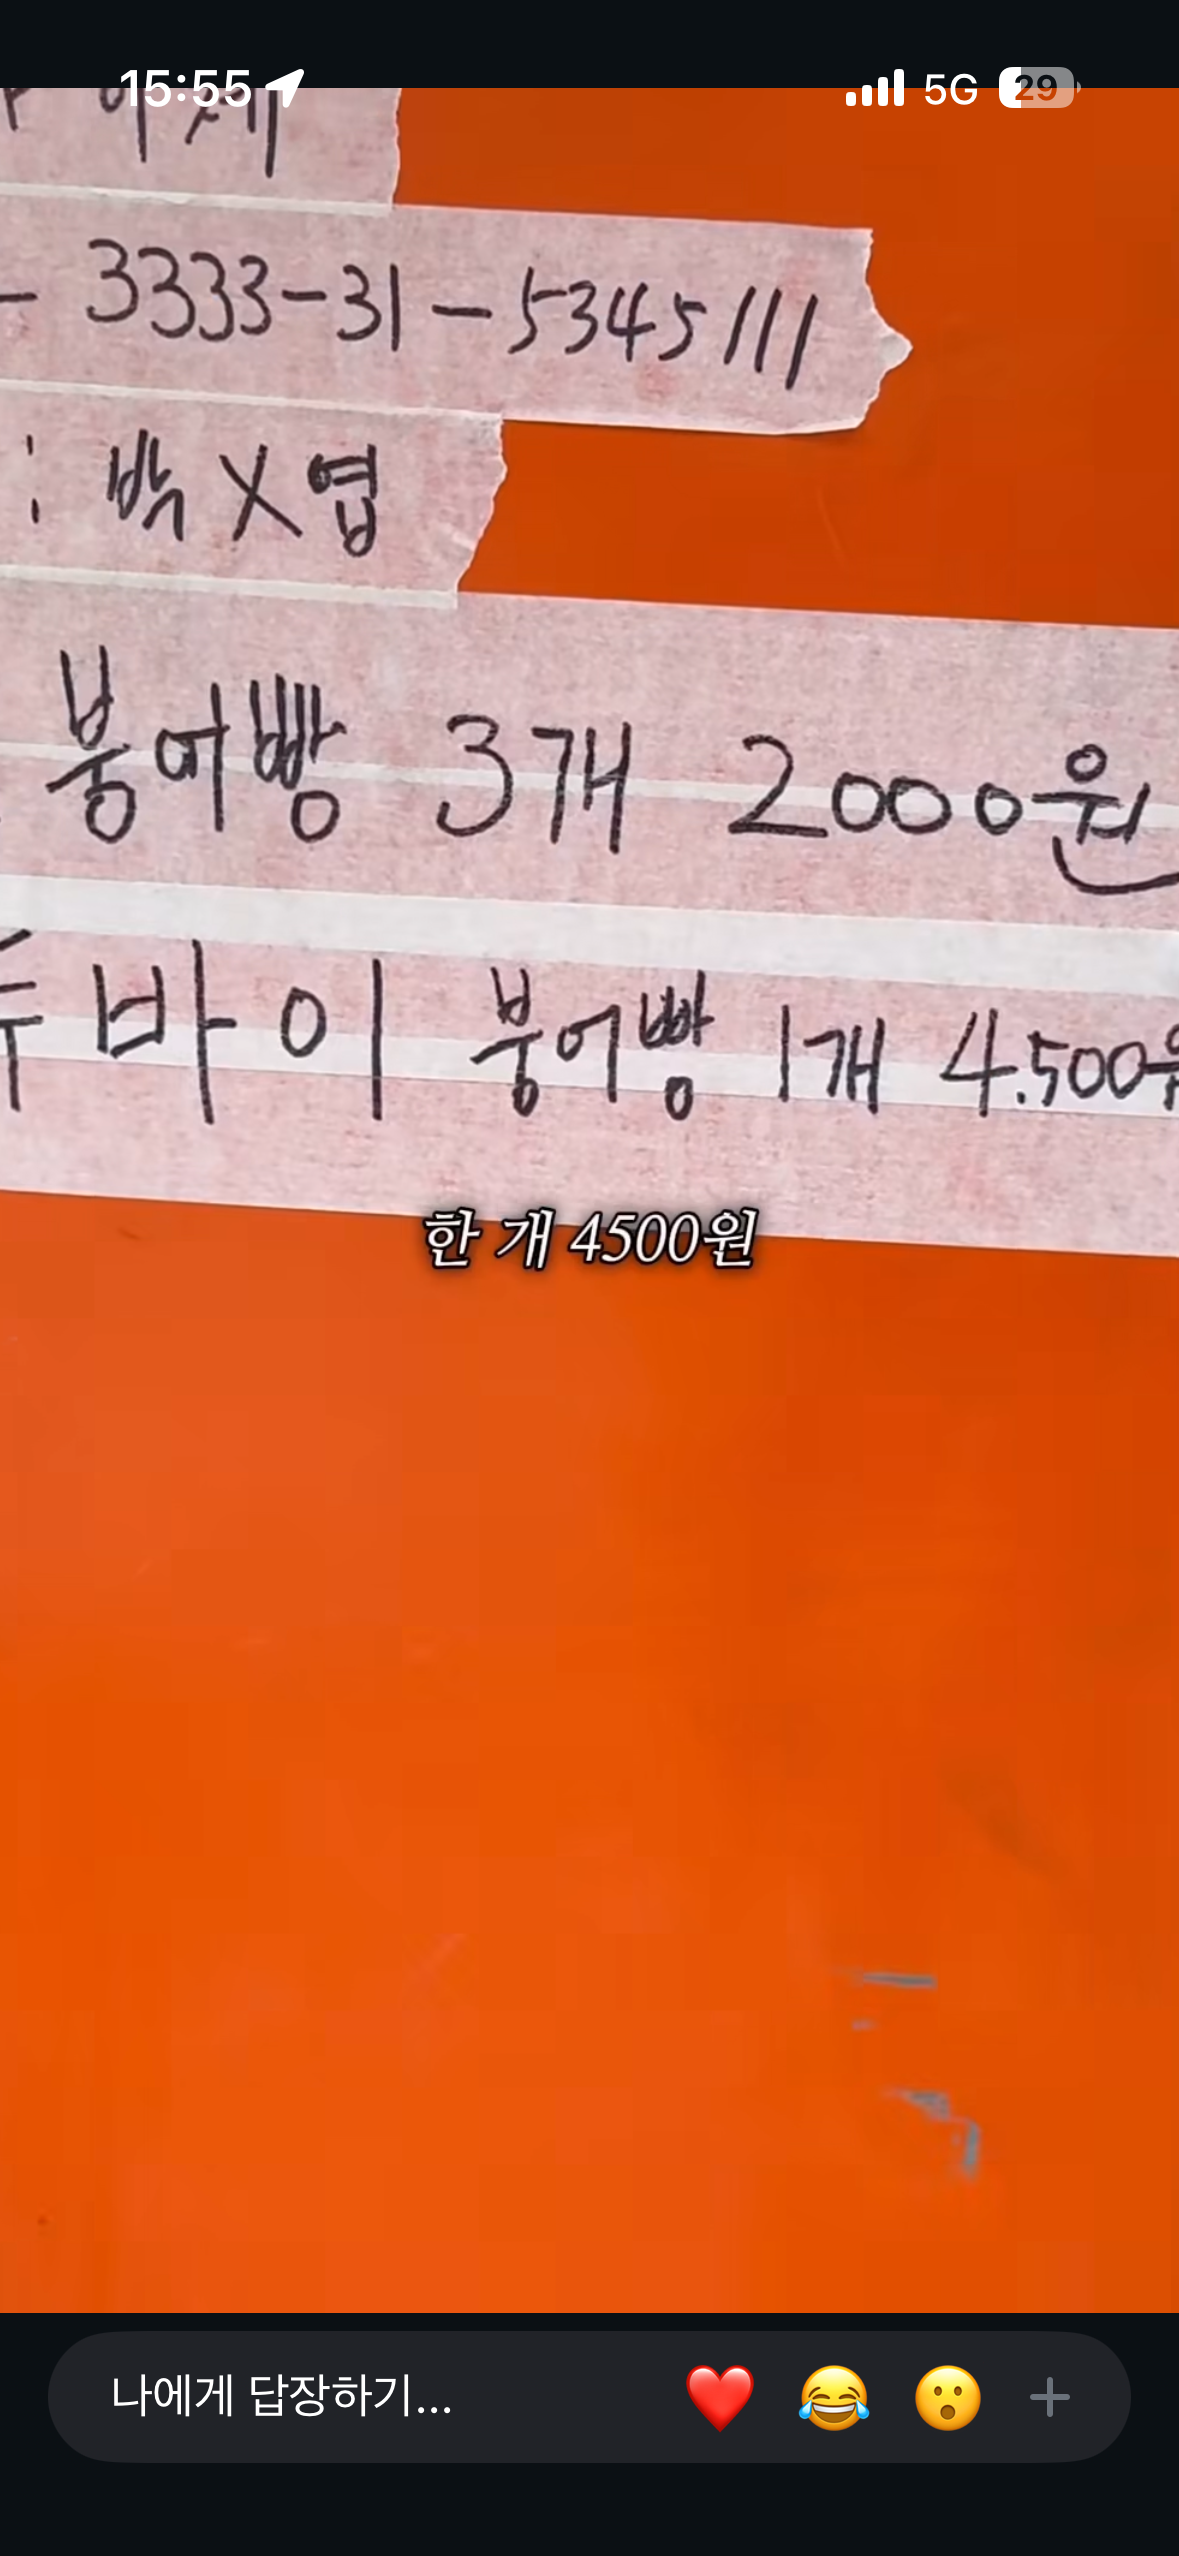 15:55
5G
29
- 3333-31-5345111
: 박X엽
붕어빵 3개 2000원
두바이 붕어빵 1개 4.500원
한 개 4500원
나에게 답장하기...